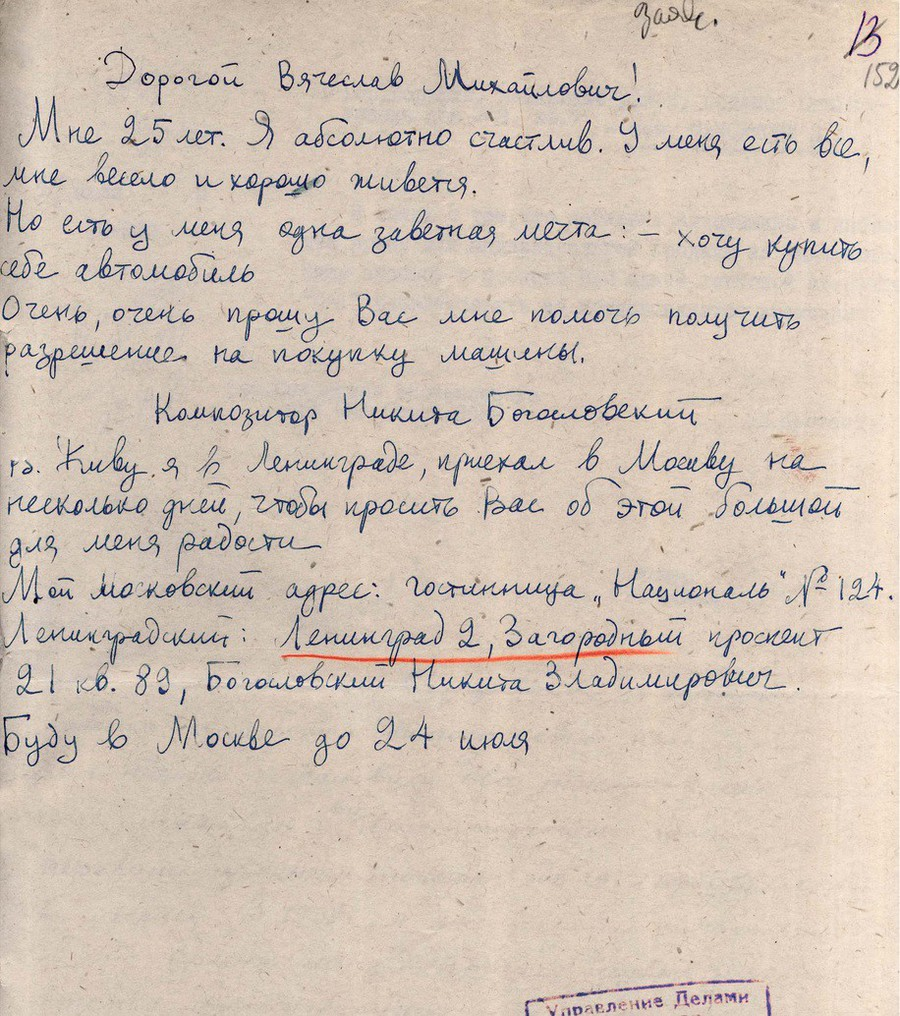 заяв.
13
152
Дорогой Вячеслав Михайлович!
Мне 25 лет. Я абсолютно счастлив. У меня есть все,
мне весело и хорошо живется.
Но есть у меня одна заветная мечта: – хочу купить
себе автомобиль
Очень, очень прошу Вас мне помочь получить
разрешение на покупку машины.
Композитор Никита Богословский
Живу я в Ленинграде, приехал в Москву на
несколько дней, чтобы просить Вас об этой большой
для меня радости
Мой московский адрес: гостинница „Националь" № 124.
Ленинградский: Ленинград 2, Загородный проспект
21 кв. 89, Богословский Никита Владимирович.
Буду в Москве до 24 июля
Управление Делами